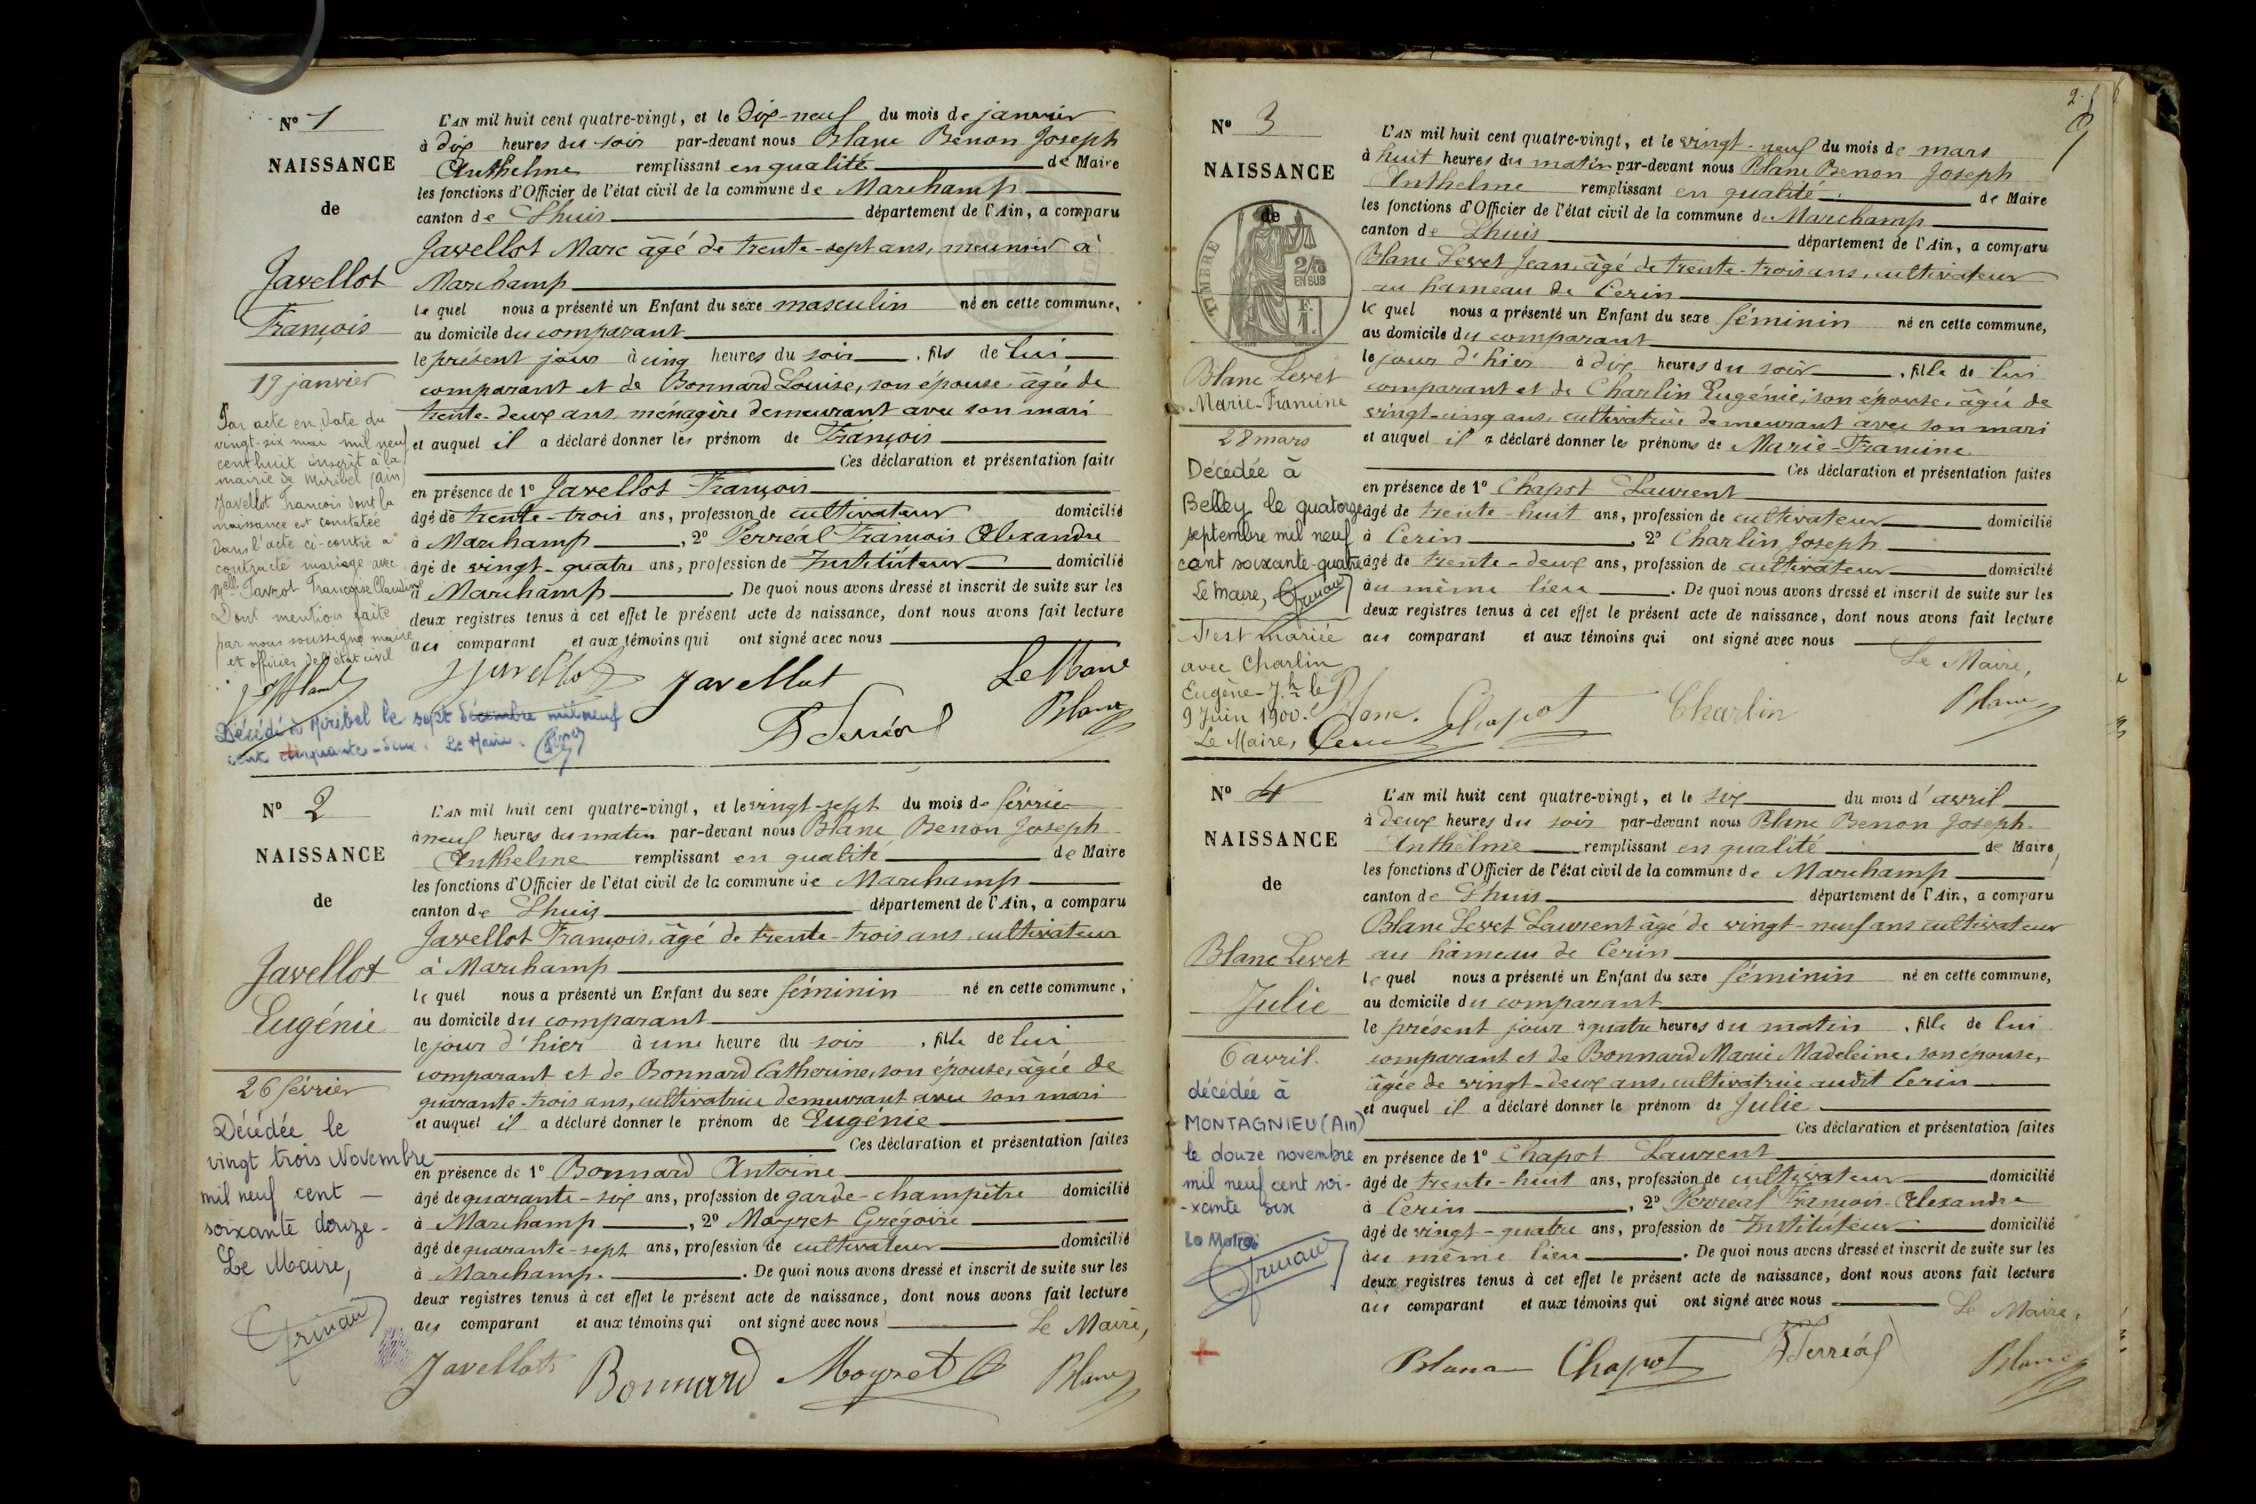 N° 1
NAISSANCE
de
Javellot
François
19 janvier
Par acte en date du
vingt-six mai mil neuf
cent huit inscrit à la
mairie de Miribel (Ain)
Javellot François dont la
naissance est constatée
dans l'acte ci-contre a
contracté mariage avec
Melle Favrot Françoise Claudine
Dont mention faite
par nous soussigné maire
et officier de l'état civil
Décédé à Miribel le sept décembre mil neuf
cent cinquante-deux. Le Maire.
L'AN mil huit cent quatre-vingt, et le dix-neuf du mois de janvier
à dix heures du soir par-devant nous Blanc Benon Joseph
Anthelme remplissant en qualité de Maire
les fonctions d'Officier de l'état civil de la commune de Marchamp
canton de Lhuis département de l'Ain, a comparu
Javellot Marc âgé de trente-sept ans, meunier à
Marchamp
le quel nous a présenté un Enfant du sexe masculin né en cette commune,
au domicile du comparant
le présent jour à cinq heures du soir, fils de lui
comparant et de Bonnard Louise, son épouse âgée de
trente-deux ans, ménagère demeurant avec son mari
et auquel il a déclaré donner les prénom de François
Ces déclaration et présentation faite
en présence de 1° Javellot François
âgé de trente-trois ans, profession de cultivateur domicilié
à Marchamp, 2° Perréal François Alexandre
âgé de vingt-quatre ans, profession de Instituteur domicilié
à Marchamp De quoi nous avons dressé et inscrit de suite sur les
deux registres tenus à cet effet le présent acte de naissance, dont nous avons fait lecture
au comparant et aux témoins qui ont signé avec nous
Javellot Javellot Le Maire
Perréal Blanc
N° 2
NAISSANCE
de
Javellot
Eugénie
26 février
Décédée le
vingt trois Novembre
mil neuf cent
soixante douze-
Le Maire,
L'AN mil huit cent quatre-vingt, et le vingt-sept du mois de février
à neuf heures du matin par-devant nous Blanc Benon Joseph
Anthelme remplissant en qualité de Maire
les fonctions d'Officier de l'état civil de la commune de Marchamp
canton de Lhuis département de l'Ain, a comparu
Javellot François, âgé de trente-trois ans, cultivateur
à Marchamp
le quel nous a présenté un Enfant du sexe féminin né en cette commune,
au domicile du comparant
le jour d'hier à une heure du soir, fille de lui
comparant et de Bonnard Catherine, son épouse, âgée de
quarante-trois ans, cultivatrice demeurant avec son mari
et auquel il a déclaré donner le prénom de Eugénie
Ces déclaration et présentation faites
en présence de 1° Bonnard Antoine
âgé de quarante-six ans, profession de garde-champêtre domicilié
à Marchamp, 2° Moyret Grégoire
âgé de quarante-sept ans, profession de cultivateur domicilié
à Marchamp. De quoi nous avons dressé et inscrit de suite sur les
deux registres tenus à cet effet le présent acte de naissance, dont nous avons fait lecture
au comparant et aux témoins qui ont signé avec nous Le Maire,
Javellot Bonnard Moyret G Blanc
2
N° 3
NAISSANCE
de
TIMBRE
2/10
EN SUS
Blanc Levet
Marie-Francine
28 mars
Décédée à
Belley le quatorze
septembre mil neuf
cent soixante-quatre
Le Maire,
S'est mariée
avec Charlin
Eugène-Jh le
9 Juin 1900.
Le Maire,
L'AN mil huit cent quatre-vingt, et le vingt-neuf du mois de mars
à huit heures du matin par-devant nous Blanc Benon Joseph
Anthelme remplissant en qualité de Maire
les fonctions d'Officier de l'état civil de la commune de Marchamp
canton de Lhuis département de l'Ain, a comparu
Blanc Levet Jean, âgé de trente-trois ans, cultivateur
au hameau de Cerin
le quel nous a présenté un Enfant du sexe féminin né en cette commune,
au domicile du comparant
le jour d'hier à dix heures du soir, fille de lui
comparant et de Charlin Eugénie, son épouse, âgée de
vingt-cinq ans, cultivatrice demeurant avec son mari
et auquel il a déclaré donner les prénoms de Marie-Francine
Ces déclaration et présentation faites
en présence de 1° Chapot Laurent
âgé de trente-huit ans, profession de cultivateur domicilié
à Cerin, 2° Charlin Joseph
âgé de trente-deux ans, profession de cultivateur domicilié
au même lieu. De quoi nous avons dressé et inscrit de suite sur les
deux registres tenus à cet effet le présent acte de naissance, dont nous avons fait lecture
au comparant et aux témoins qui ont signé avec nous
Le Maire,
Blanc. Chapot Charlin Blanc
N° 4
NAISSANCE
de
Blanc Levet
Julie
6 avril.
décédée à
MONTAGNIEU (Ain)
le douze novembre
mil neuf cent soi-
-xante six
Le Maire
L'AN mil huit cent quatre-vingt, et le six du mois d'avril
à deux heures du soir par-devant nous Blanc Benon Joseph.
Anthelme remplissant en qualité de Maire,
les fonctions d'Officier de l'état civil de la commune de Marchamp
canton de Lhuis département de l'Ain, a comparu
Blanc Levet Laurent âgé de vingt-neuf ans cultivateur
au hameau de Cerin
le quel nous a présenté un Enfant du sexe féminin né en cette commune,
au domicile du comparant
le présent jour à quatre heures du matin, fille de lui
comparant et de Bonnard Marie Madeleine, son épouse,
âgée de vingt-deux ans, cultivatrice audit Cerin
et auquel il a déclaré donner le prénom de Julie
Ces déclaration et présentation faites
en présence de 1° Chapot Laurent
âgé de trente-huit ans, profession de cultivateur domicilié
à Cerin, 2° Perréal François-Alexandre
âgé de vingt-quatre ans, profession de Instituteur domicilié
au même lieu. De quoi nous avons dressé et inscrit de suite sur les
deux registres tenus à cet effet le présent acte de naissance, dont nous avons fait lecture
au comparant et aux témoins qui ont signé avec nous Le Maire,
Blanc Chapot Perréal Blanc